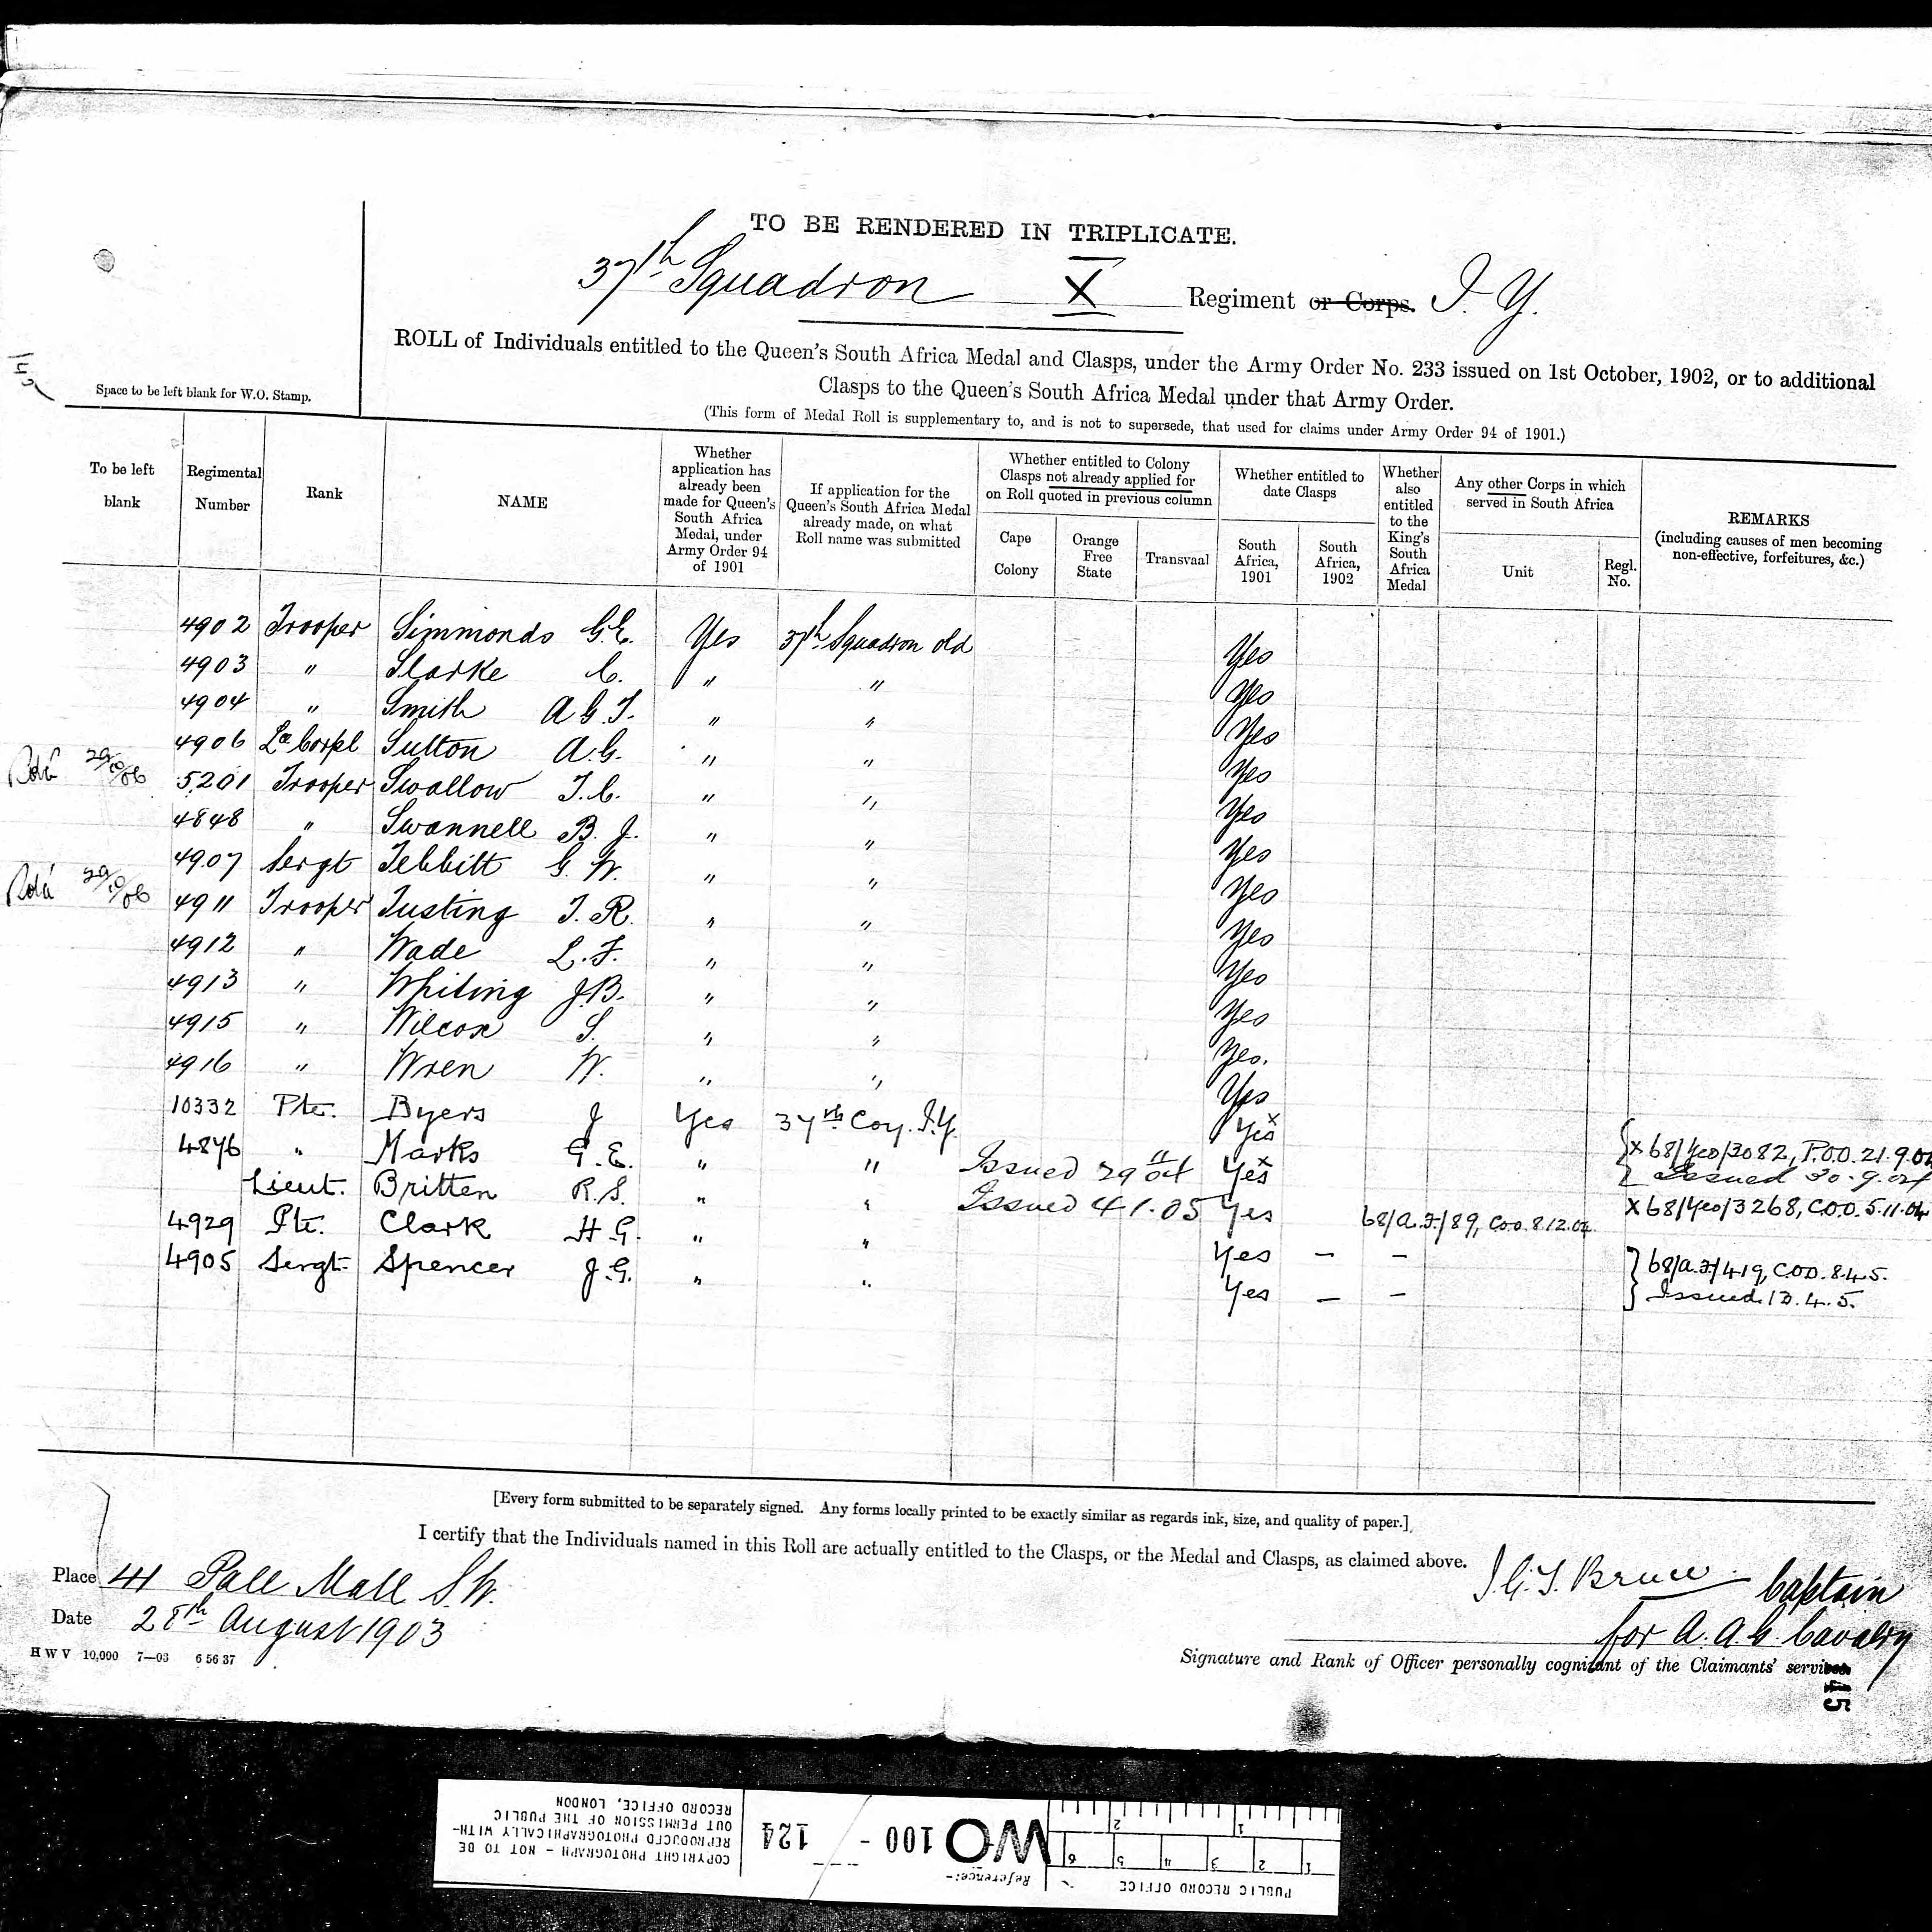 TO BE RENDERED IN TRIPLICATE.
37th Squadron X Regiment or Corps. I. Y.
ROLL of Individuals entitled to the Queen's South Africa Medal and Clasps, under the Army Order No. 233 issued on 1st October, 1902, or to additional
Clasps to the Queen's South Africa Medal under that Army Order.
(This form of Medal Roll is supplementary to, and is not to supersede, that used for claims under Army Order 94 of 1901.)
Space to be left blank for W.O. Stamp.
To be left blank
Regimental Number
Rank
NAME
Whether application has already been made for Queen's South Africa Medal, under Army Order 94 of 1901
If application for the Queen's South Africa Medal already made, on what Roll name was submitted
Whether entitled to Colony Clasps not already applied for on Roll quoted in previous column
Cape Colony
Orange Free State
Transvaal
Whether entitled to date Clasps
South Africa, 1901
South Africa, 1902
Whether also entitled to the King's South Africa Medal
Any other Corps in which served in South Africa
Unit
Regl. No.
REMARKS
(including causes of men becoming non-effective, forfeitures, &c.)
4902 Trooper Simmonds G.E. Yes 37th Squadron old Yes
4903 " Slarke C. " " Yes
4904 " Smith A G. T. " " Yes
4906 Lce Corpl Sutton A.G. " " Yes
29/10/06 5201 Trooper Swallow T. C. " " Yes
4848 " Swannell B. J. " " Yes
4907 Sergt Tebbitt G. W. " " Yes
29/10/06 4911 Trooper Tusting T. R. " " Yes
4912 " Wade L. F. " " Yes
4913 " Whiting J.B. " " Yes
4915 " Wilcox S. " " Yes.
4916 " Wren W. " " Yes
10332 Pte. Byers J Yes 37th Coy. I.Y. Yes x
4876 " Marks G. E. " " Issued 29 11 04 Yes x x 68/Yeo/3082, P.O.O. 21.9.04
Issued 30.9.04
Lieut. Britten R.S. " " Issued 4 1.05 Yes x 68/Yeo/3268, C.O.O. 5.11.04
4929 Pte. Clark H G. " " Yes – – 68/A.F/89, C.O.O. 8.12.04
4905 Sergt. Spencer J.G. " " Yes – – 68/A.F/419, C.O.D. 8.4.5.
Issued 13.4.5.
[Every form submitted to be separately signed. Any forms locally printed to be exactly similar as regards ink, size, and quality of paper.]
I certify that the Individuals named in this Roll are actually entitled to the Clasps, or the Medal and Clasps, as claimed above.
Place 41 Pall Mall S.W.
Date 28th August 1903
Bruce Captain
for A. A. G. Cavalry
Signature and Rank of Officer personally cognizant of the Claimants' services
H W V 10,000 7—03 6 56 37
145
PUBLIC RECORD OFFICE
1 2 3 4 5 6
1 2
Reference:-
WO 100 - 124
COPYRIGHT PHOTOGRAPH - NOT TO BE
REPRODUCED PHOTOGRAPHICALLY WITH-
OUT PERMISSION OF THE PUBLIC
RECORD OFFICE, LONDON